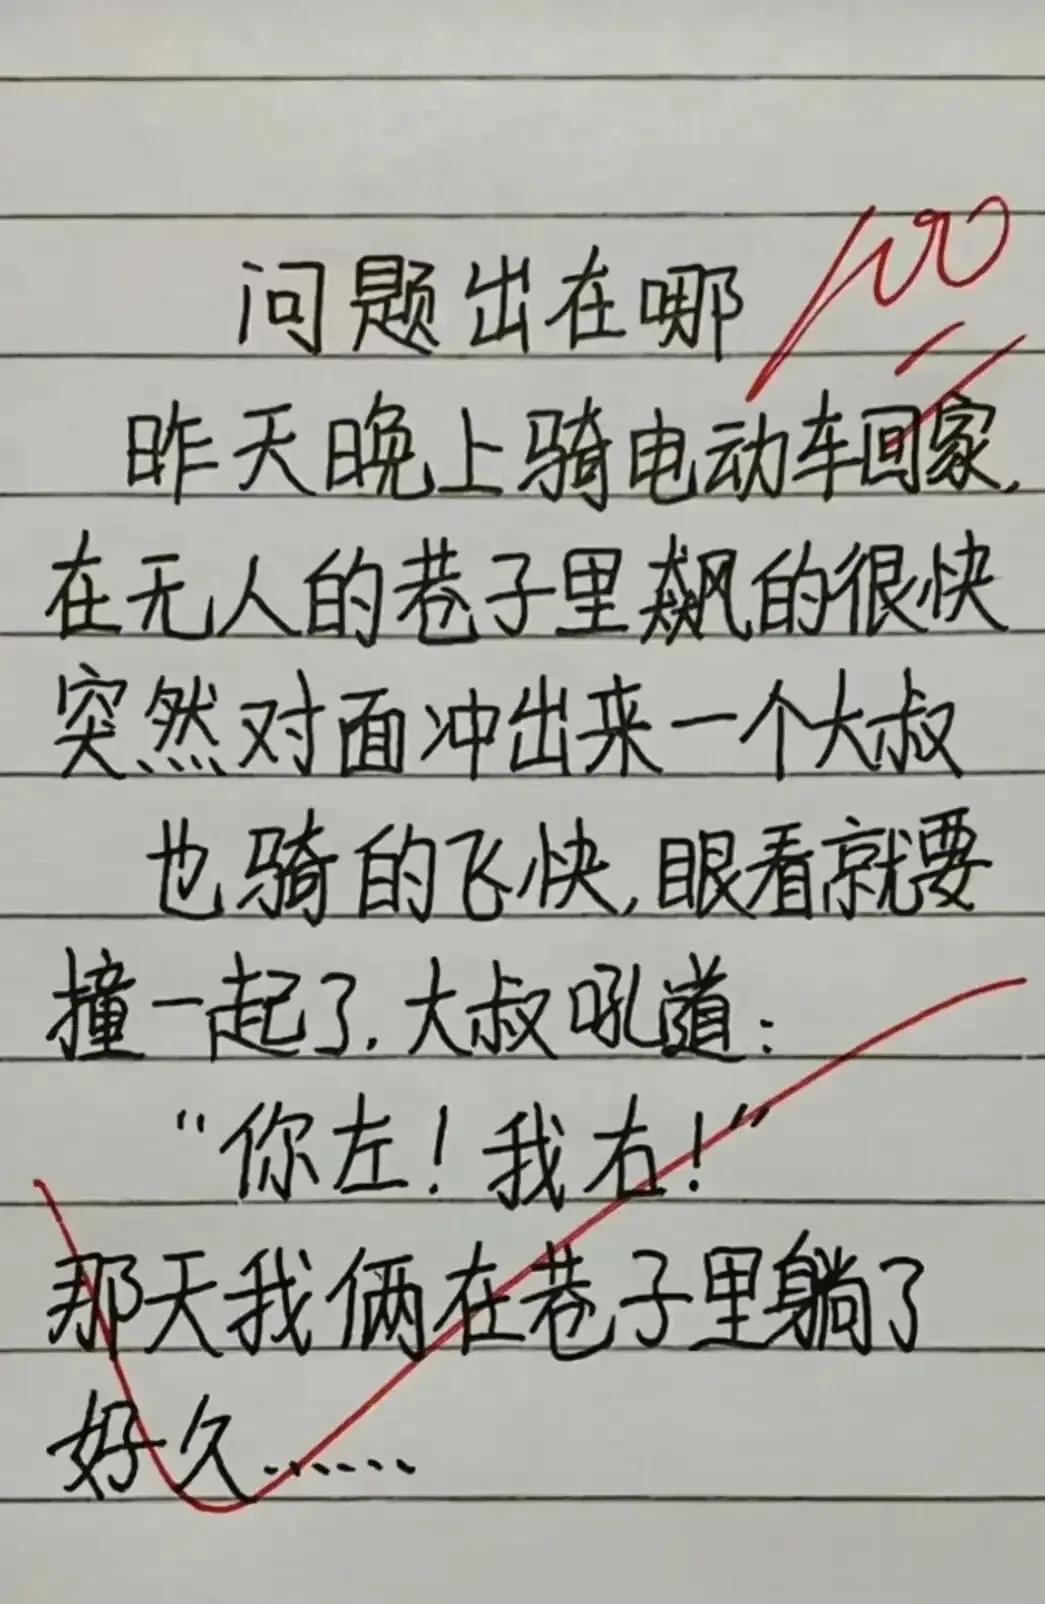 100
问题出在哪
昨天晚上骑电动车回家,
在无人的巷子里飙的很快
突然对面冲出来一个大叔
也骑的飞快,眼看就要
撞一起了.大叔吼道:
“你左!我右!”
那天我俩在巷子里躺了
好久……